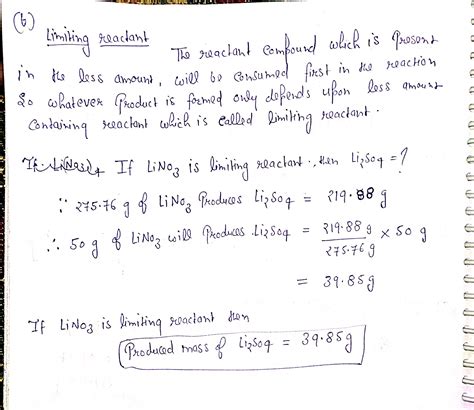 (b) Limiting reactant
The reactant compound which is Present
in the less amount, will be consumed first in the reaction
So whatever Product is formed only depends upon less amount
Containing reactant which is called limiting reactant.
If LiNO3 is limiting reactant, then Li2SO4 = ?
∵ 275.76 g of LiNO3 Produces Li2SO4 = 219.88 g
∴ 50 g of LiNO3 will Produces Li2SO4 = 219.88 g / 275.76 g × 50 g
= 39.85 g
If LiNO3 is limiting reactant then
Produced mass of Li2SO4 = 39.85 g